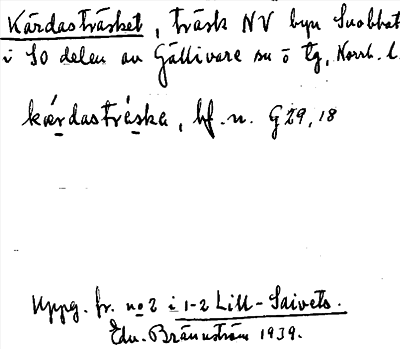 Kårdasträsket, träsk NV byn Suobbat
i SO delen av Gällivare sn o tg, Norrb. l.
kærdastræska, bf. n. G 29, 18
Uppg. fr. no 2 i 1-2 Lill-Saivets.
Edv. Brännström 1939.